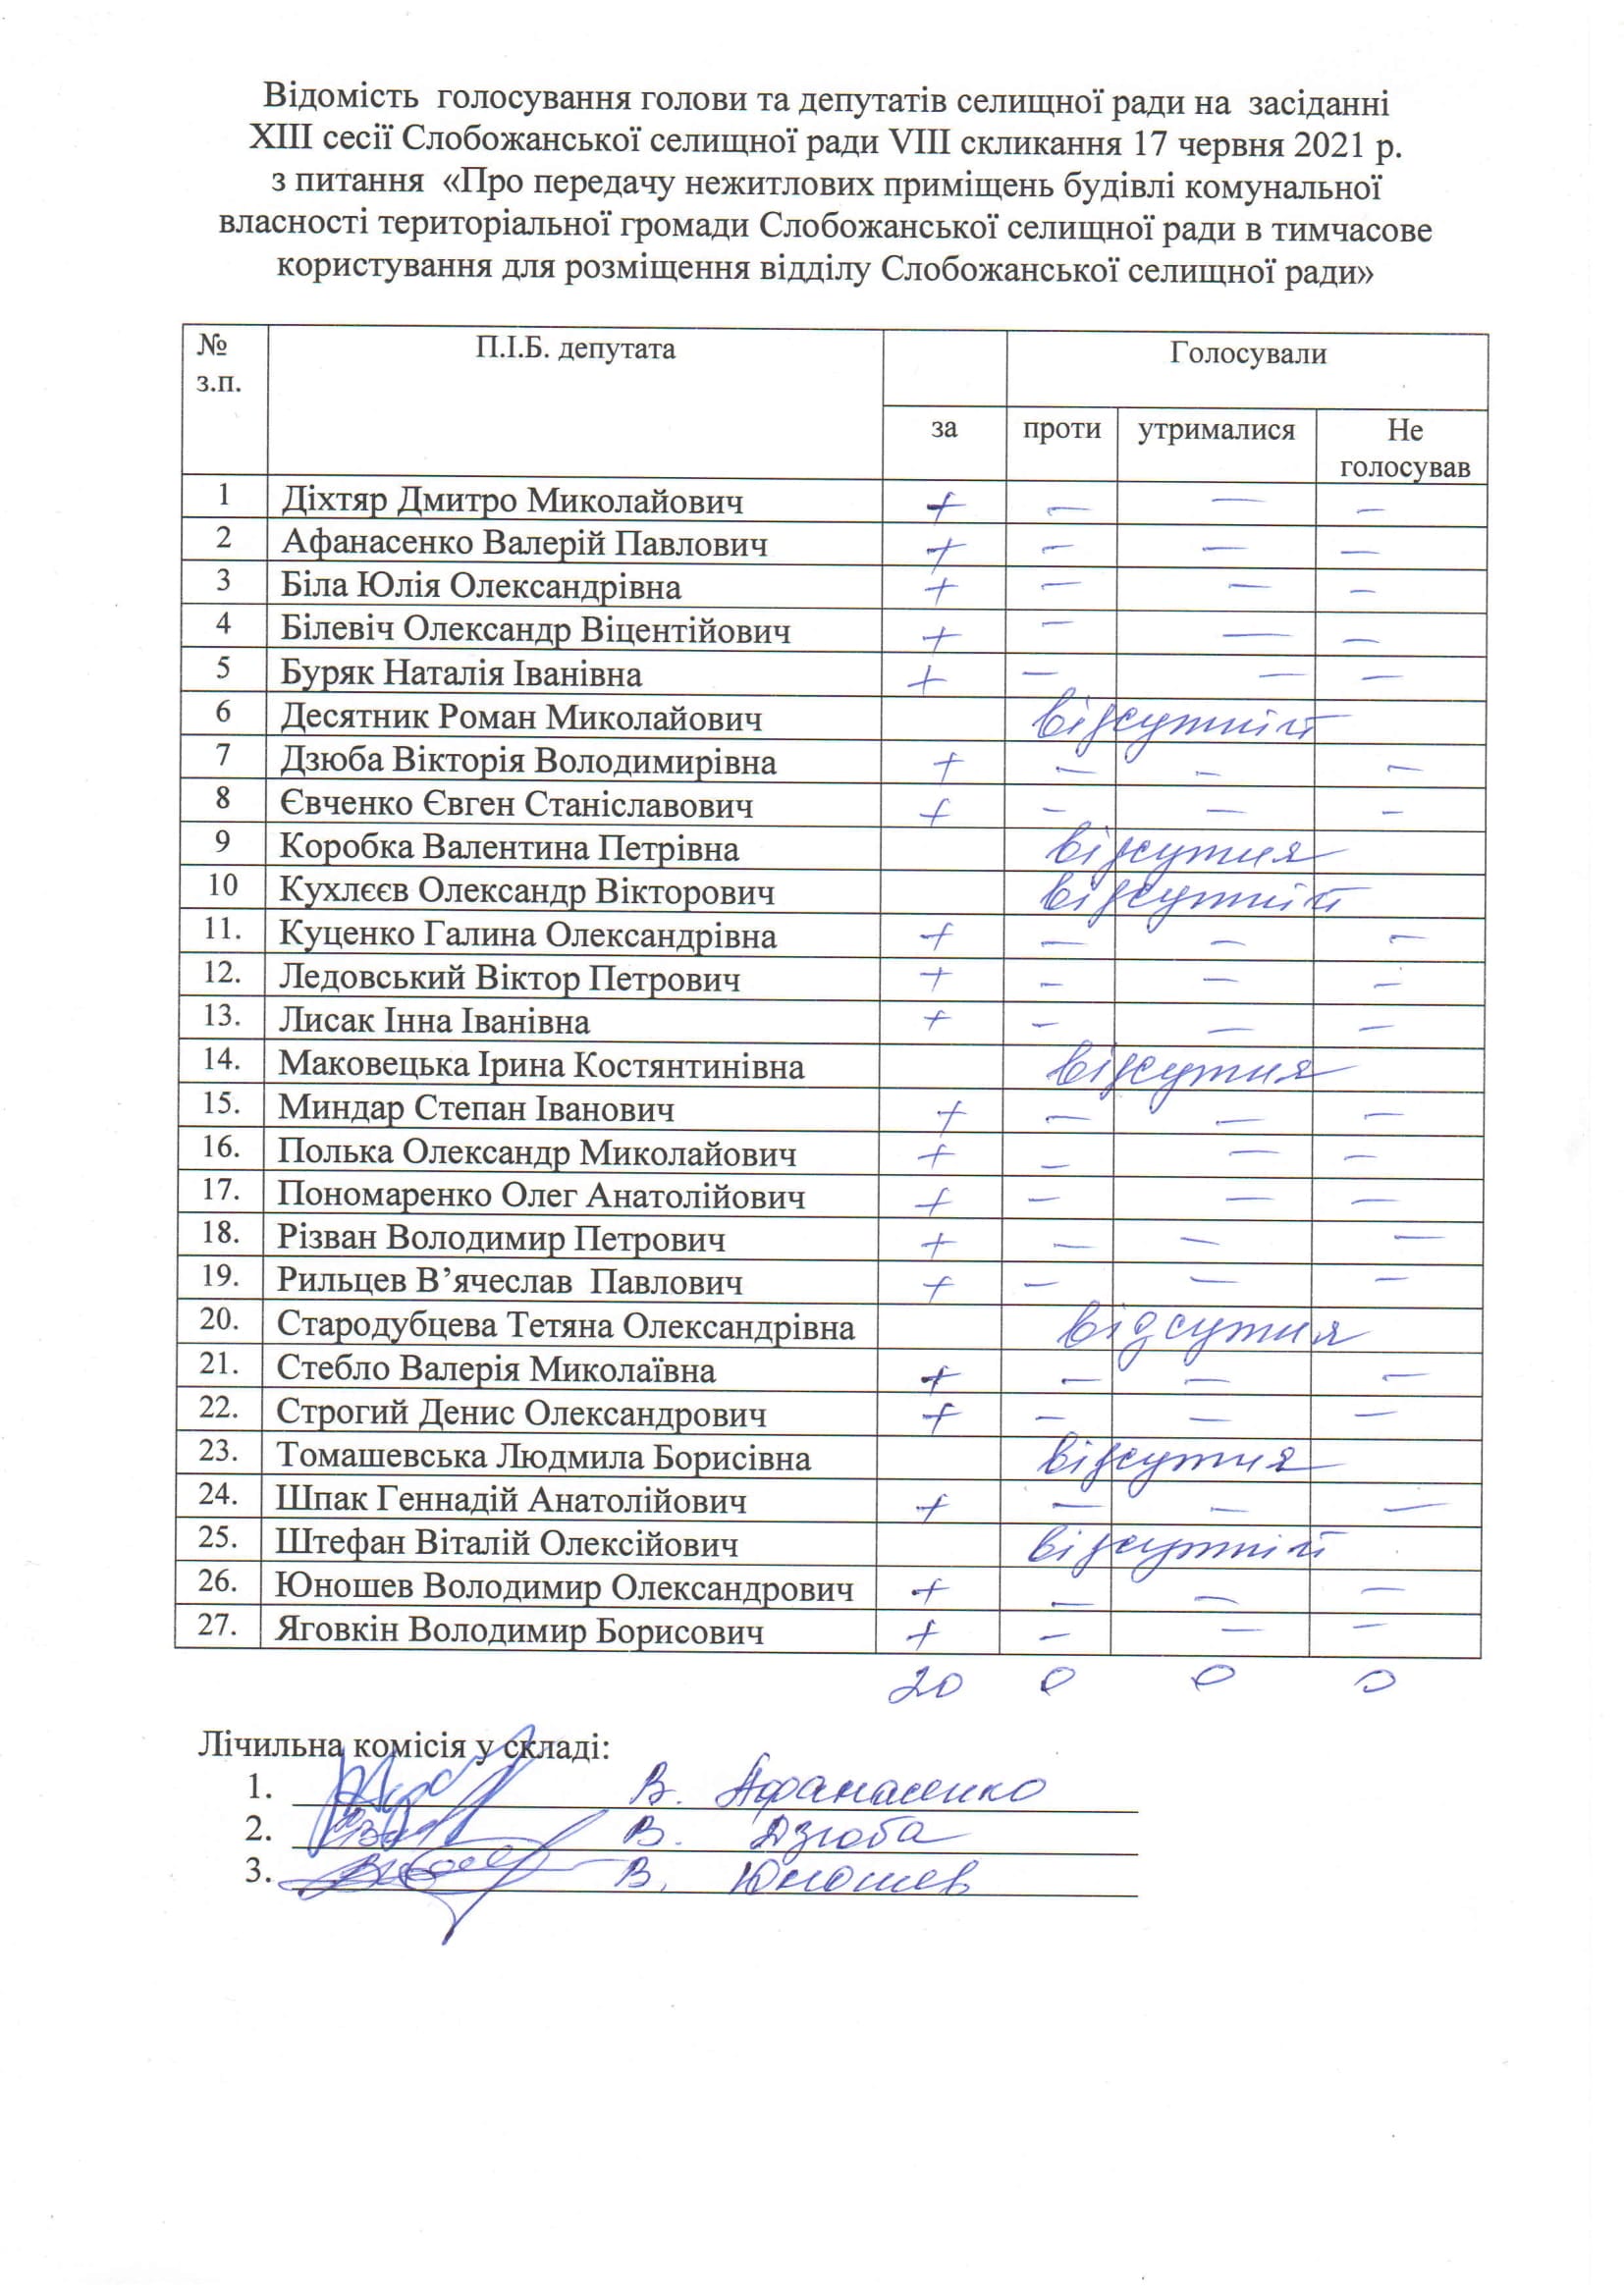 Відомість голосування голови та депутатів селищної ради на засіданні
XIII сесії Слобожанської селищної ради VIII скликання 17 червня 2021 р.
з питання «Про передачу нежитлових приміщень будівлі комунальної
власності територіальної громади Слобожанської селищної ради в тимчасове
користування для розміщення відділу Слобожанської селищної ради»
№ з.п. П.І.Б. депутата Голосували
за проти утрималися Не голосував
1 Діхтяр Дмитро Миколайович + – – –
2 Афанасенко Валерій Павлович + – – –
3 Біла Юлія Олександрівна + – – –
4 Білевіч Олександр Віцентійович + – – –
5 Буряк Наталія Іванівна + – – –
6 Десятник Роман Миколайович відсутній
7 Дзюба Вікторія Володимирівна + – – –
8 Євченко Євген Станіславович + – – –
9 Коробка Валентина Петрівна відсутня
10 Кухлєєв Олександр Вікторович відсутній
11. Куценко Галина Олександрівна + – – –
12. Ледовський Віктор Петрович + – – –
13. Лисак Інна Іванівна + – – –
14. Маковецька Ірина Костянтинівна відсутня
15. Миндар Степан Іванович + – – –
16. Полька Олександр Миколайович + – – –
17. Пономаренко Олег Анатолійович + – – –
18. Різван Володимир Петрович + – – –
19. Рильцев В’ячеслав Павлович + – – –
20. Стародубцева Тетяна Олександрівна відсутня
21. Стебло Валерія Миколаївна + – – –
22. Строгий Денис Олександрович + – – –
23. Томашевська Людмила Борисівна відсутня
24. Шпак Геннадій Анатолійович + – – –
25. Штефан Віталій Олексійович відсутній
26. Юношев Володимир Олександрович + – – –
27. Яговкін Володимир Борисович + – – –
20 0 0 0
Лічильна комісія у складі:
1. В. Афанасенко
2. В. Дзюба
3. В. Юношев